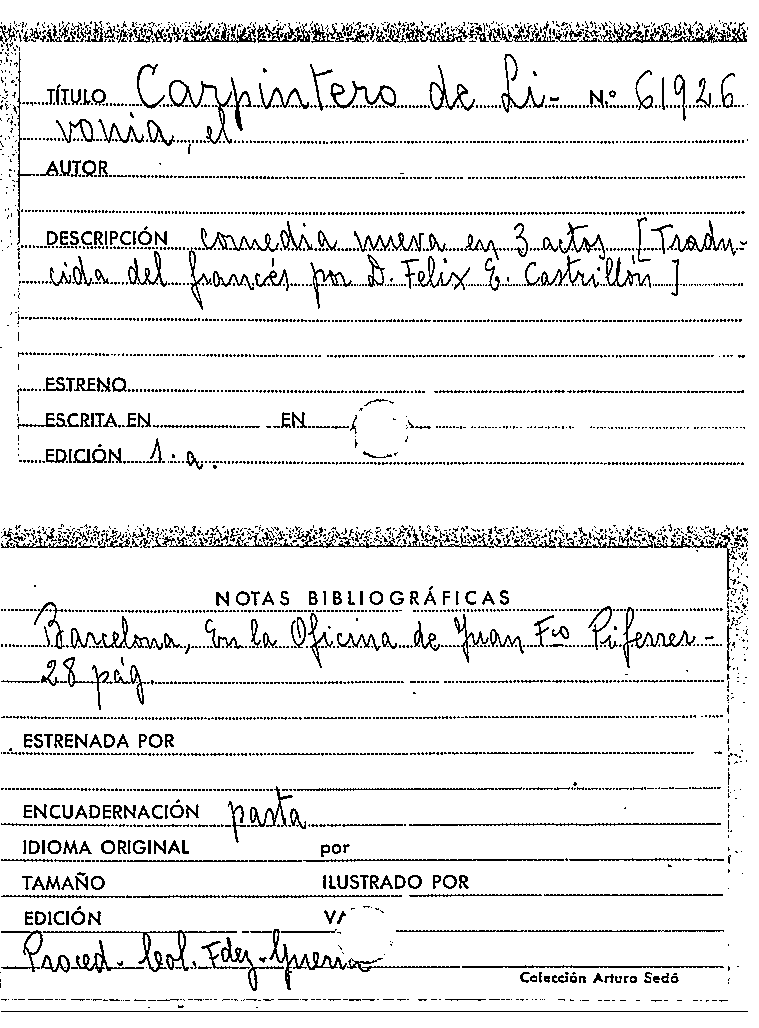 TÍTULO Carpintero de Li- N.º 61926
vonia, el
AUTOR
DESCRIPCIÓN comedia nueva en 3 actos [Tradu-
cida del francés por D. Felix E. Castrillón]
ESTRENO
ESCRITA EN EN
EDICIÓN 1.a.
NOTAS BIBLIOGRÁFICAS
Barcelona, En la Oficina de Juan Fco Piferrer-
28 pág.
ESTRENADA POR
ENCUADERNACIÓN pasta
IDIOMA ORIGINAL por
TAMAÑO ILUSTRADO POR
EDICIÓN
Proced. Col. Fdez-Guerra
Colección Arturo Sedó